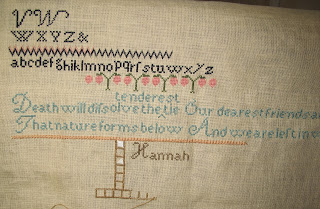 V W
W X Y Z &
abcdefghiklmnopqrſstuvwxyz
tenderest
Death will diſsolve the tie Our dearest friends a
That nature forms below And we are left in
Hannah